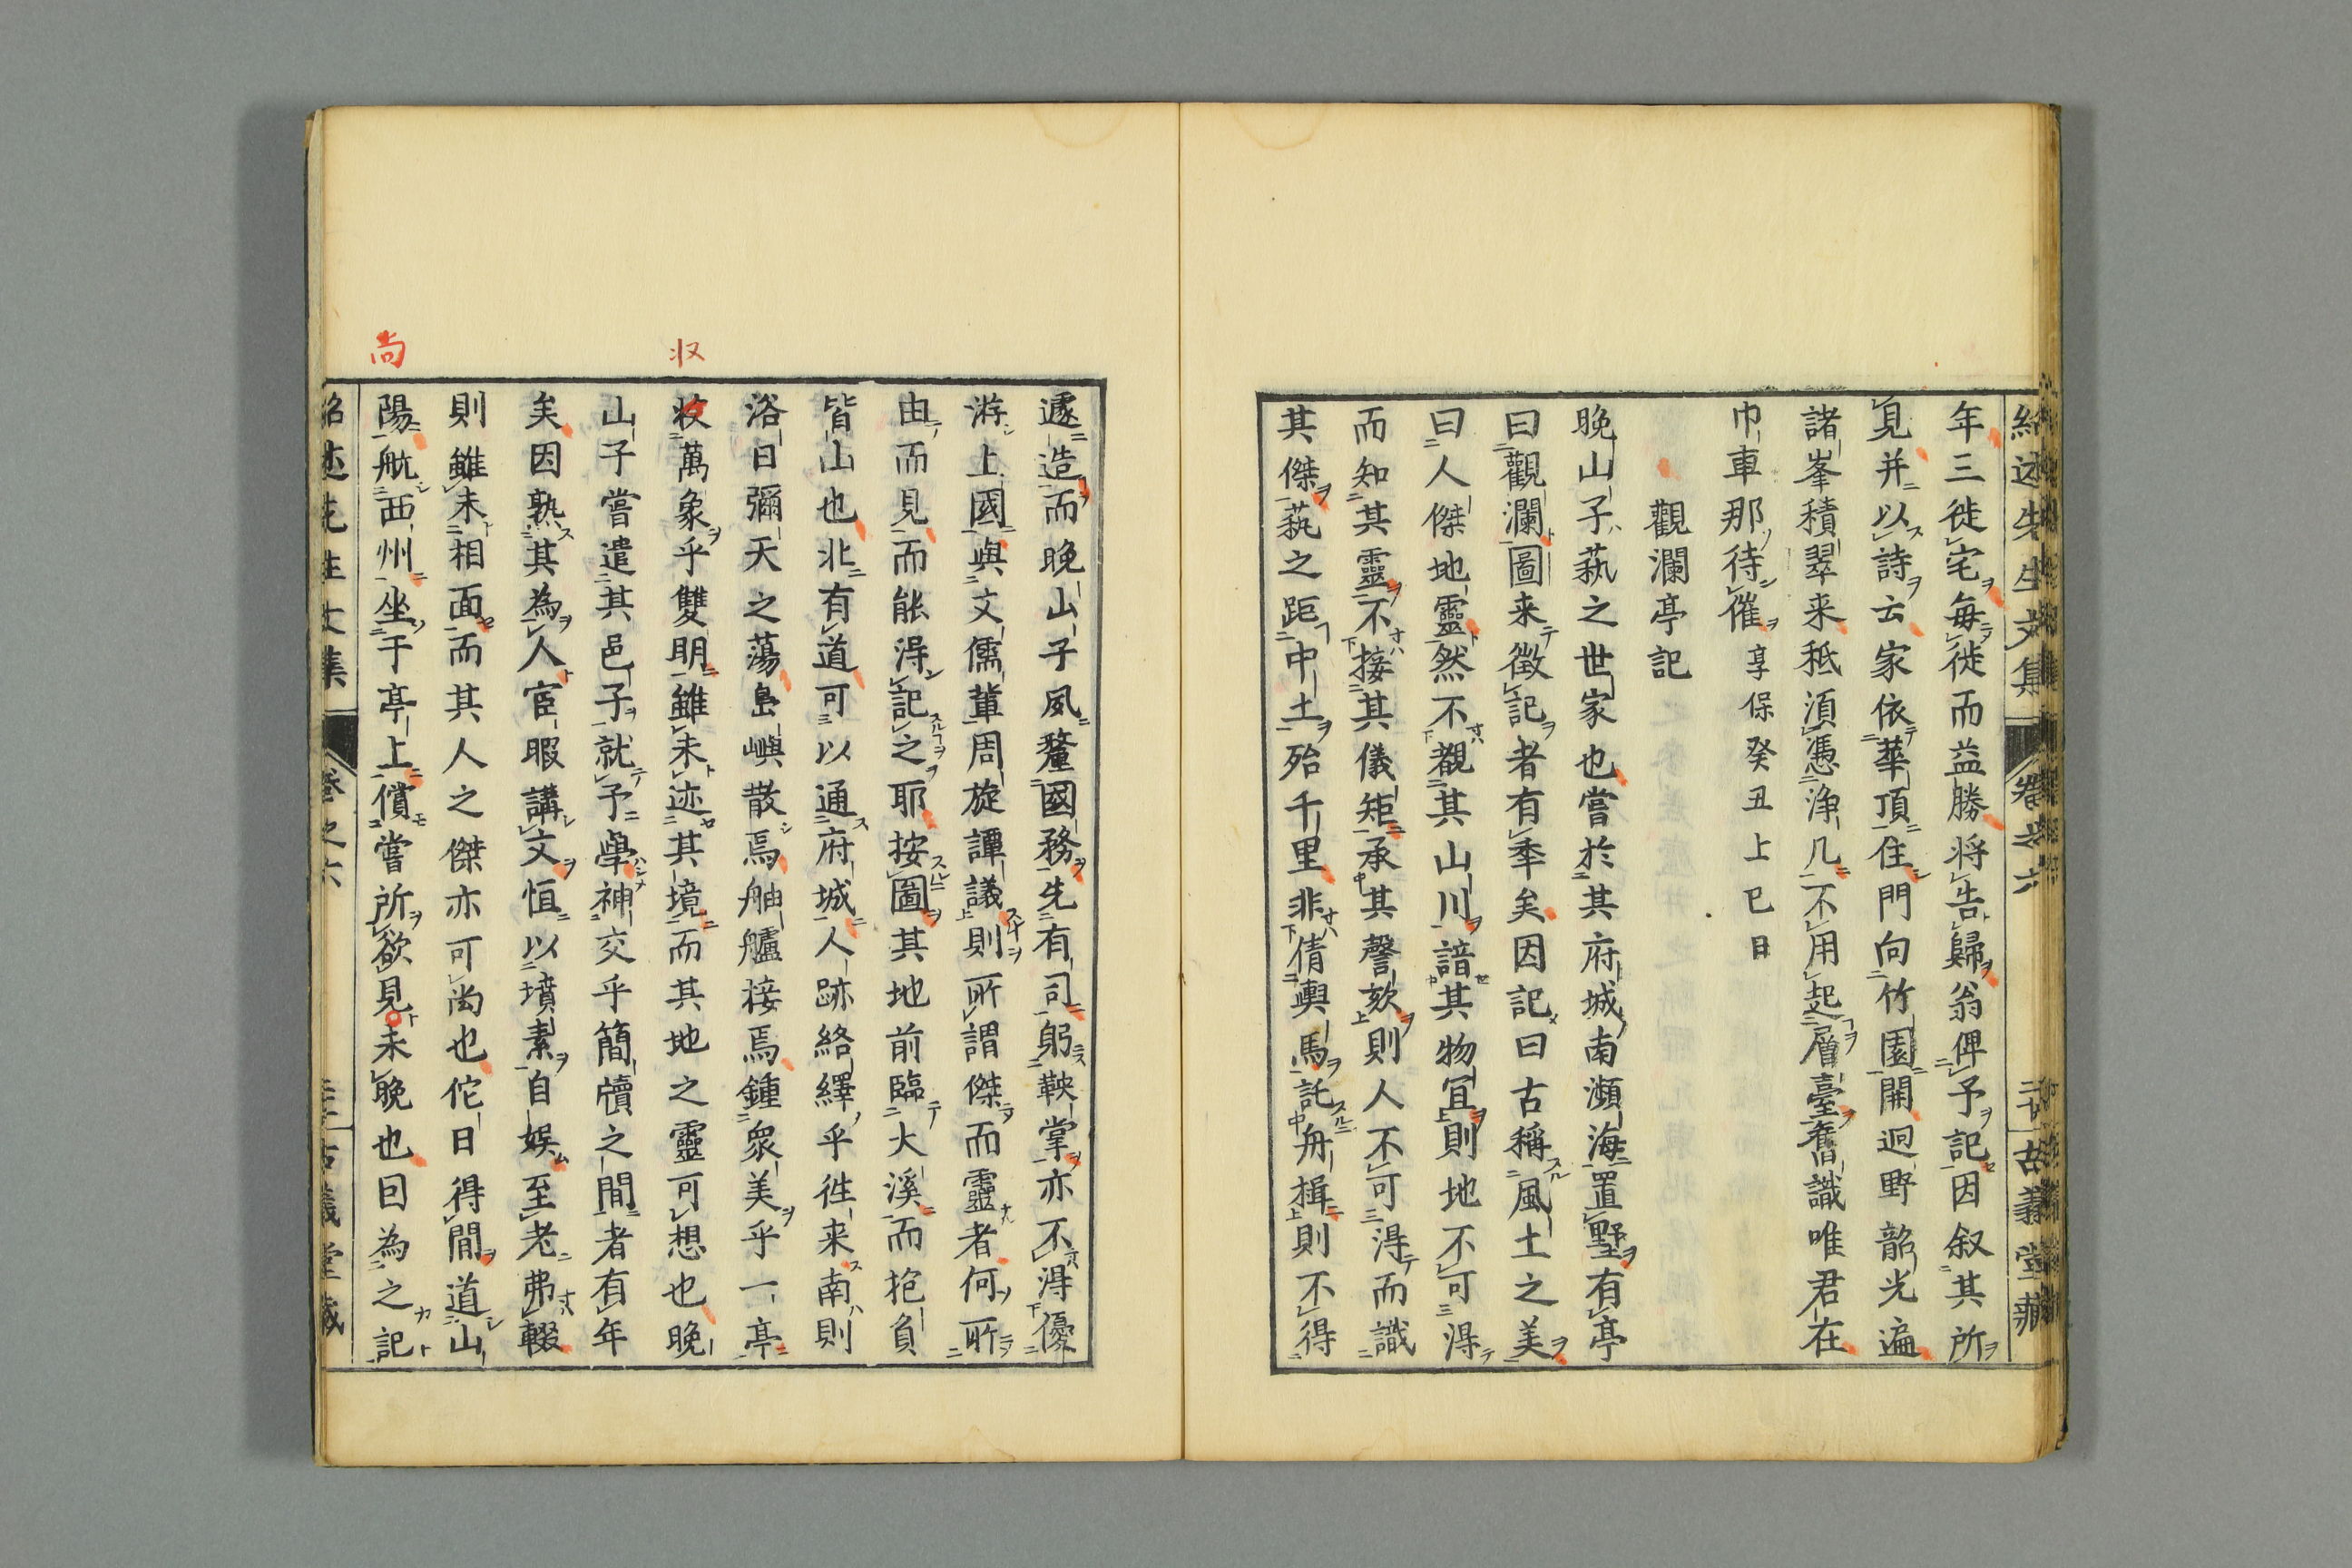 年三徙宅毎徙而益勝将告歸翁俾予記因叙其所
見并以詩云家依華頂住門向竹園開迥野韶光遍
諸峯積翠来秪湏憑浄几不用起層臺舊識唯君在
巾車那待催享保癸丑上巳日
觀瀾亭記
晩山子蓺之世家也嘗於其府城南瀕海置墅有亭
曰觀瀾圖来徴記者有季矣因記曰古稱風土之美
曰人傑地靈然不觀其山川諳其物冝則地不可得
而知其靈不接其儀矩承其謦欬則人不可得而識
其傑蓺之距中土殆千里非倩輿馬託舟揖則不得
遽造而晩山子夙釐國務先有司躬鞅掌亦不得優
游上國與文儒軰周旋譚議則所謂傑而靈者何所
由而見而能得記之耶按圖其地前臨大溪而抱負
皆山也北有道可以通府城人跡絡繹乎徃来南則
浴日彌天之蕩島嶼散焉舳艫接焉鍾衆美乎一亭
収
妆萬象乎雙明雖未迹其境而其地之靈可想也晩
山子嘗遣其邑子就予學神交乎簡牘之間者有年
矣因熟其為人宦暇講文恒以墳素自娯至老弗輟
則雖未相面而其人之傑亦可尚也佗日得間道山
尚
陽航西州坐于亭上償嘗所欲見未晩也囙為之記
巻之六
古義堂藏